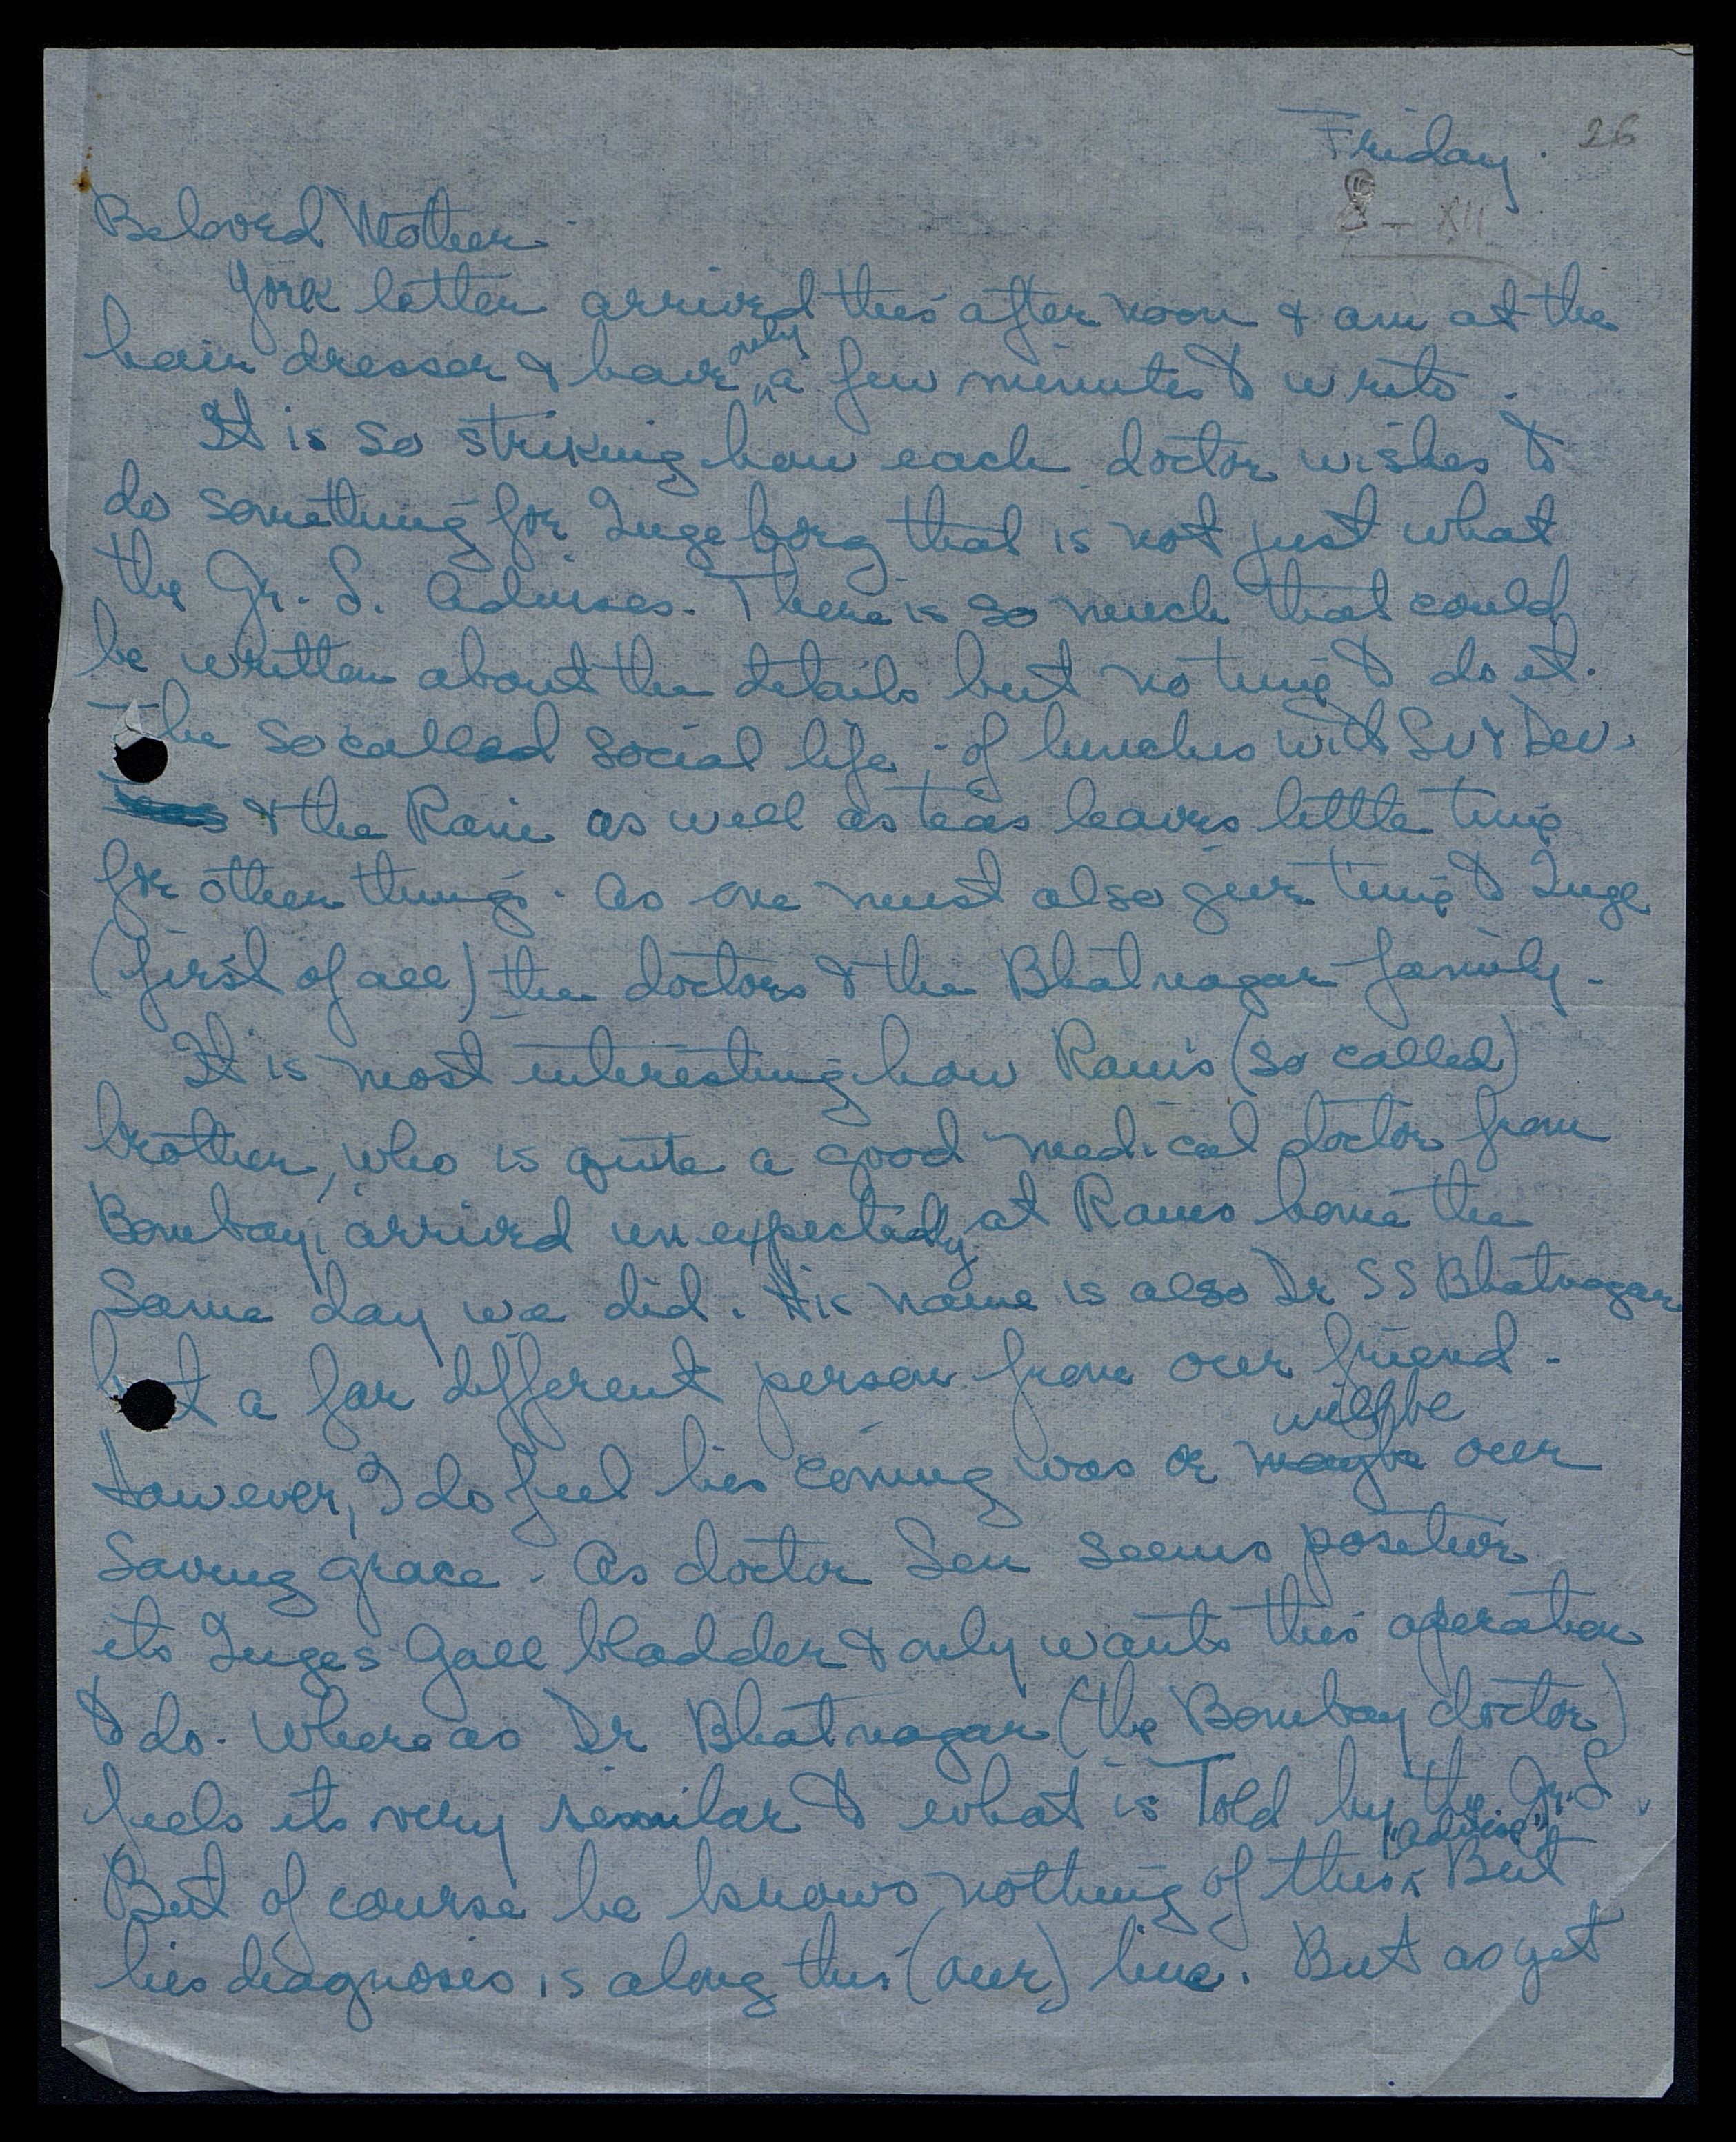 Friday. 26
8 - XII
Beloved Mother
Your letter arrived this after noon & am at the
hair dresser & have only a few minutes to write.
It is so striking how each doctor wishes to
do something for Inge borg that is not just what
the Gr. S. Advises. There is so much that could
be written about the details but no time to do it.
The so called social life, of lunches with Sv & Dev.
& the Rani as well as teas leaves little time
for other things. As one must also give time to Inge
(first of all) the doctors & the Bhatnagar family.
It is most interesting how Rani's (so called)
brother, who is quite a good medical doctor from
Bombay, arrived un expectedly at Ranis home the
Same day we did. His name is also Dr SS Bhatnagar
but a far different person from our friend.
However, I do feel his coming was or will be our
Saving grace. As doctor Sen seems positive
its Inges Gall bladder & only wants this operation
to do. Where as Dr Bhatnagar (the Bombay doctor)
feels its very similar to what is Told by the Gr. S.
But of course he knows nothing of this "advise". But
his diagnosis is along this (our) line. But as yet